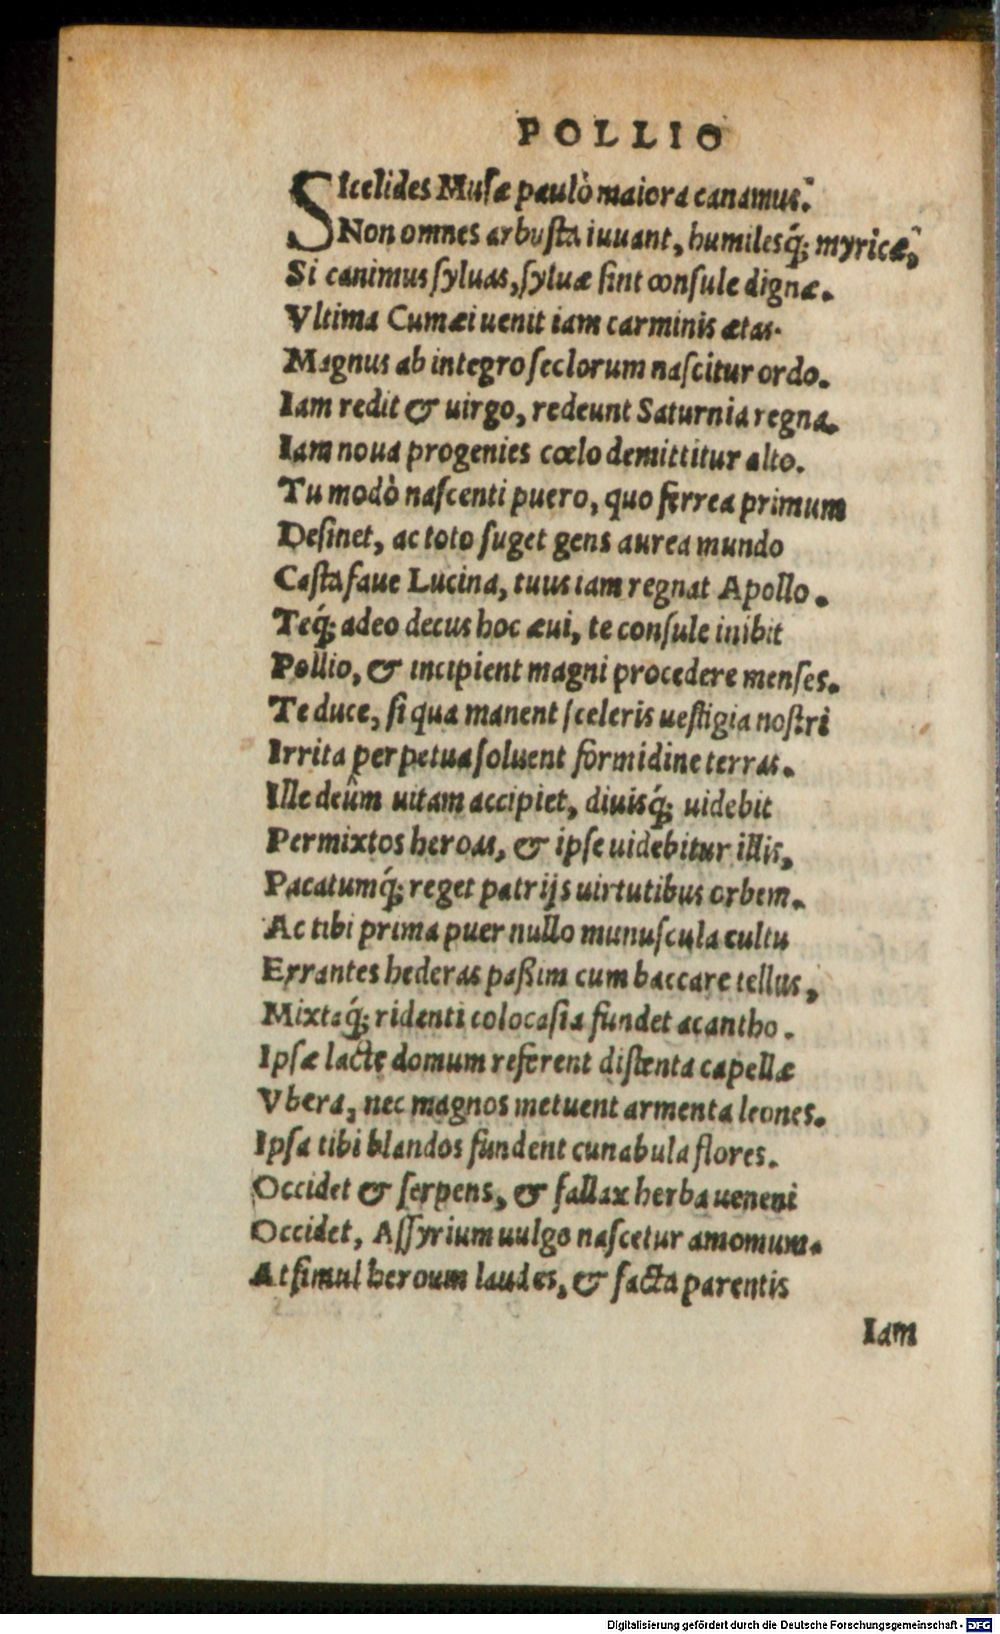 POLLIO
SIcelides Muſæ paulò maiora canamus.
Non omnes arbuſta iuuant, humilesq́; myricæ,
Si canimus ſyluas, ſyluæ ſint conſule dignæ.
Vltima Cumæi uenit iam carminis ætas.
Magnus ab integro ſeclorum naſcitur ordo.
Iam redit & uirgo, redeunt Saturnia regna.
Iam noua progenies cœlo demittitur alto.
Tu modò naſcenti puero, quo ferrea primum
Deſinet, ac toto ſuget gens aurea mundo
Caſta faue Lucina, tuus iam regnat Apollo.
Teq́; adeo decus hoc æui, te conſule inibit
Pollio, & incipient magni procedere menſes.
Te duce, ſi qua manent ſceleris ueſtigia noſtri
Irrita perpetua ſoluent formidine terras.
Ille deûm uitam accipiet, diuisq́; uidebit
Permixtos heroas, & ipſe uidebitur illis,
Pacatumq́; reget patrijs uirtutibus orbem.
Ac tibi prima puer nullo munuſcula cultu
Errantes hederas paßim cum baccare tellus,
Mixtaq́; ridenti colocaſia fundet acantho.
Ipſæ lacte domum referent diſtenta capellæ
Vbera, nec magnos metuent armenta leones.
Ipſa tibi blandos fundent cunabula flores.
Occidet & ſerpens, & fallax herba ueneni
Occidet, Aſſyrium uulgo naſcetur amomum.
At ſimul heroum laudes, & facta parentis
Iam
Digitalisierung gefördert durch die Deutsche Forschungsgemeinschaft - DFG